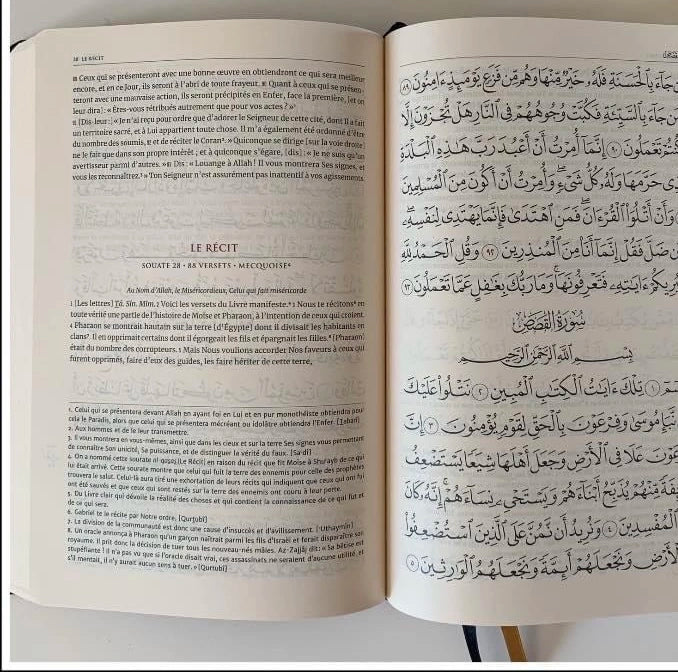 28 LE RÉCIT
89 Ceux qui se présenteront avec une bonne œuvre en obtiendront ce qui sera meilleur
encore, et en ce Jour, ils seront à l'abri de toute frayeur. 90 Quant à ceux qui se présen-
teront avec une mauvaise action, ils seront précipités en Enfer, face la première, [et on
leur dira] : « Êtes-vous rétribués autrement que pour vos actes ? »
91 [Dis-leur :] « Je n'ai reçu pour ordre que d'adorer le Seigneur de cette cité, dont Il a fait
un territoire sacré, et à Lui appartient toute chose. Il m'a également été ordonné d'être
du nombre des soumis, 92 et de réciter le Coran. » Quiconque se dirige [sur la voie droite]
ne le fait que dans son propre intérêt ; et à quiconque s'égare, [dis] : « Je ne suis qu'un
avertisseur parmi d'autres. » 93 Dis : « Louange à Allah ! Il vous montrera Ses signes, et
vous les reconnaîtrez.³ » Ton Seigneur n'est assurément pas inattentif à vos agissements.
LE RÉCIT
SOUATE 28 • 88 VERSETS • MECQUOISE⁴
Au Nom d'Allah, le Miséricordieux, Celui qui fait miséricorde
1 [Les lettres] Tâ. Sîn. Mîm. 2 Voici les versets du Livre manifeste.⁵ 3 Nous te récitons⁶ en
toute vérité une partie de l'histoire de Moïse et Pharaon, à l'intention de ceux qui croient.
4 Pharaon se montrait hautain sur la terre [d'Égypte] dont il divisait les habitants en
clans⁷. Il en opprimait certains dont il égorgeait les fils et épargnait les filles.⁸ [Pharaon]
était du nombre des corrupteurs. 5 Mais Nous voulions accorder Nos faveurs à ceux qui
furent opprimés, faire d'eux des guides, les faire hériter de cette terre,
1. Celui qui se présentera devant Allah en ayant foi en Lui et en pur monothéiste obtiendra pour
cela le Paradis, alors que celui qui se présentera mécréant ou idolâtre obtiendra l'Enfer. [Tabarî]
2. Aux hommes et de le leur transmettre.
3. Il vous montrera en vous-mêmes, ainsi que dans les cieux et sur la terre Ses signes vous permettant
de connaître Son unicité, Sa puissance, et de distinguer la vérité du faux. [Sa'dî]
4. On a nommé cette sourate al-qaṣaṣ (Le Récit) en raison du récit que fit Moïse à Shu'ayb de ce qui
lui était arrivé. Cette sourate montre que celui qui fuit la terre des ennemis pour celle des prophètes
trouvera le salut. Celui-là aura tiré une exhortation de leurs récits qui indiquent que ceux qui ont fui
ont été sauvés et que ceux qui sont restés sur la terre des ennemis ont couru à leur perte.
5. Du Livre clair qui dévoile la réalité des choses et qui contient la connaissance de ce qui fut et
de ce qui sera.
6. Gabriel te le récite par Notre ordre. [Qurtubî]
7. La division de la communauté est donc une cause d'insuccès et d'avilissement. ['Uthaymîn]
8. Un oracle annonça à Pharaon qu'un garçon naîtrait parmi les fils d'Israël et ferait disparaître son
royaume. Il prit donc la décision de tuer tous les nouveau-nés mâles. Az-Zajjâj dit : « Sa bêtise est
stupéfiante ! Il n'a pas vu que si l'oracle disait vrai, ces assassinats ne seraient d'aucune utilité, et
s'il mentait, il n'y aurait aucun sens à tuer. » [Qurtubî]
جَآءَ بِٱلْحَسَنَةِ فَلَهُۥ خَيْرٌ مِّنْهَا وَهُم مِّن فَزَعٍ يَوْمَئِذٍ ءَامِنُونَ ٨٩
ن جَآءَ بِٱلسَّيِّئَةِ فَكُبَّتْ وُجُوهُهُمْ فِى ٱلنَّارِ هَلْ تُجْزَوْنَ إِلَّا
كُنتُمْ تَعْمَلُونَ ٩٠ إِنَّمَآ أُمِرْتُ أَنْ أَعْبُدَ رَبَّ هَـٰذِهِ ٱلْبَلْدَةِ
ى حَرَّمَهَا وَلَهُۥ كُلُّ شَىْءٍ وَأُمِرْتُ أَنْ أَكُونَ مِنَ ٱلْمُسْلِمِينَ
وَأَنْ أَتْلُوَا۟ ٱلْقُرْءَانَ فَمَنِ ٱهْتَدَىٰ فَإِنَّمَا يَهْتَدِى لِنَفْسِهِۦ
ن ضَلَّ فَقُلْ إِنَّمَآ أَنَا۠ مِنَ ٱلْمُنذِرِينَ ٩٢ وَقُلِ ٱلْحَمْدُ لِلَّهِ
يُرِيكُمْ ءَايَـٰتِهِۦ فَتَعْرِفُونَهَا وَمَا رَبُّكَ بِغَـٰفِلٍ عَمَّا تَعْمَلُونَ ٩٣
سُورَةُ ٱلْقَصَصِ
بِسْمِ ٱللَّهِ ٱلرَّحْمَـٰنِ ٱلرَّحِيمِ
سٓمٓ ١ تِلْكَ ءَايَـٰتُ ٱلْكِتَـٰبِ ٱلْمُبِينِ ٢ نَتْلُوا۟ عَلَيْكَ
نَّبَإِ مُوسَىٰ وَفِرْعَوْنَ بِٱلْحَقِّ لِقَوْمٍ يُؤْمِنُونَ ٣ إِنَّ
عَوْنَ عَلَا فِى ٱلْأَرْضِ وَجَعَلَ أَهْلَهَا شِيَعًا يَسْتَضْعِفُ
ئِفَةً مِّنْهُمْ يُذَبِّحُ أَبْنَآءَهُمْ وَيَسْتَحْىِۦ نِسَآءَهُمْ إِنَّهُۥ كَانَ
ٱلْمُفْسِدِينَ ٤ وَنُرِيدُ أَن نَّمُنَّ عَلَى ٱلَّذِينَ ٱسْتُضْعِفُوا۟
ٱلْأَرْضِ وَنَجْعَلَهُمْ أَئِمَّةً وَنَجْعَلَهُمُ ٱلْوَٰرِثِينَ ٥